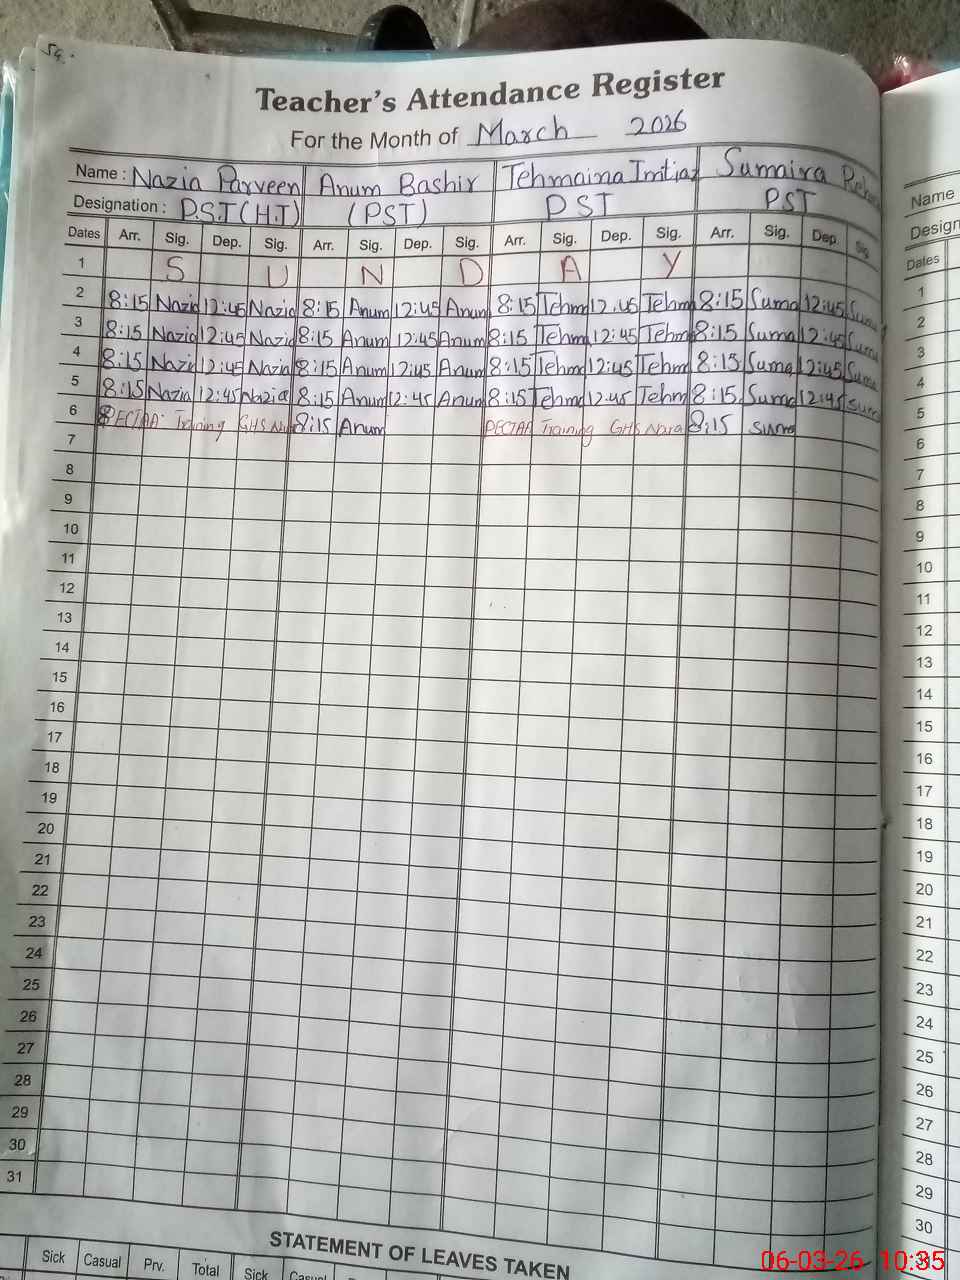 54.
Teacher's Attendance Register
For the Month of March 2026
Name : Nazia Parveen Anum Bashir Tehmaina Imtiaz Sumaira
Designation : P.S.T (H.T) (PST) PST PST
Dates Arr. Sig. Dep. Sig. Arr. Sig. Dep. Sig. Arr. Sig. Dep. Sig. Arr. Sig. Dep. Sig.
1 S U N D A Y
2 8:15 Nazia 12:45 Nazia 8:15 Anum 12:45 Anum 8:15 Tehm 12.45 Tehm 8:15 Suma 12:45 Suma
3 8:15 Nazia 12:45 Nazia 8:15 Anum 12:45 Anum 8:15 Tehm 12:45 Tehm 8:15 Suma 12:45 Suma
4 8:15 Nazia 12:45 Nazia 8:15 Anum 12:45 Anum 8:15 Tehm 12:45 Tehm 8:15 Suma 12:45 Suma
5 8:15 Nazia 12:45 Nazia 8:15 Anum 12:45 Anum 8:15 Tehm 12:45 Tehm 8:15 Suma 12:45 Suma
6 PECTAA Training GHS 8:15 Anum PECTAA Training GHS Nara 8:15 Suma
7
8
9
10
11
12
13
14
15
16
17
18
19
20
21
22
23
24
25
26
27
28
29
30
31
STATEMENT OF LEAVES TAKEN
Sick Casual Prv. Total Sick
Name
Design
Dates
1
2
3
4
5
6
7
8
9
10
11
12
13
14
15
16
17
18
19
20
21
22
23
24
25
26
27
28
29
30
06-03-26 10:35